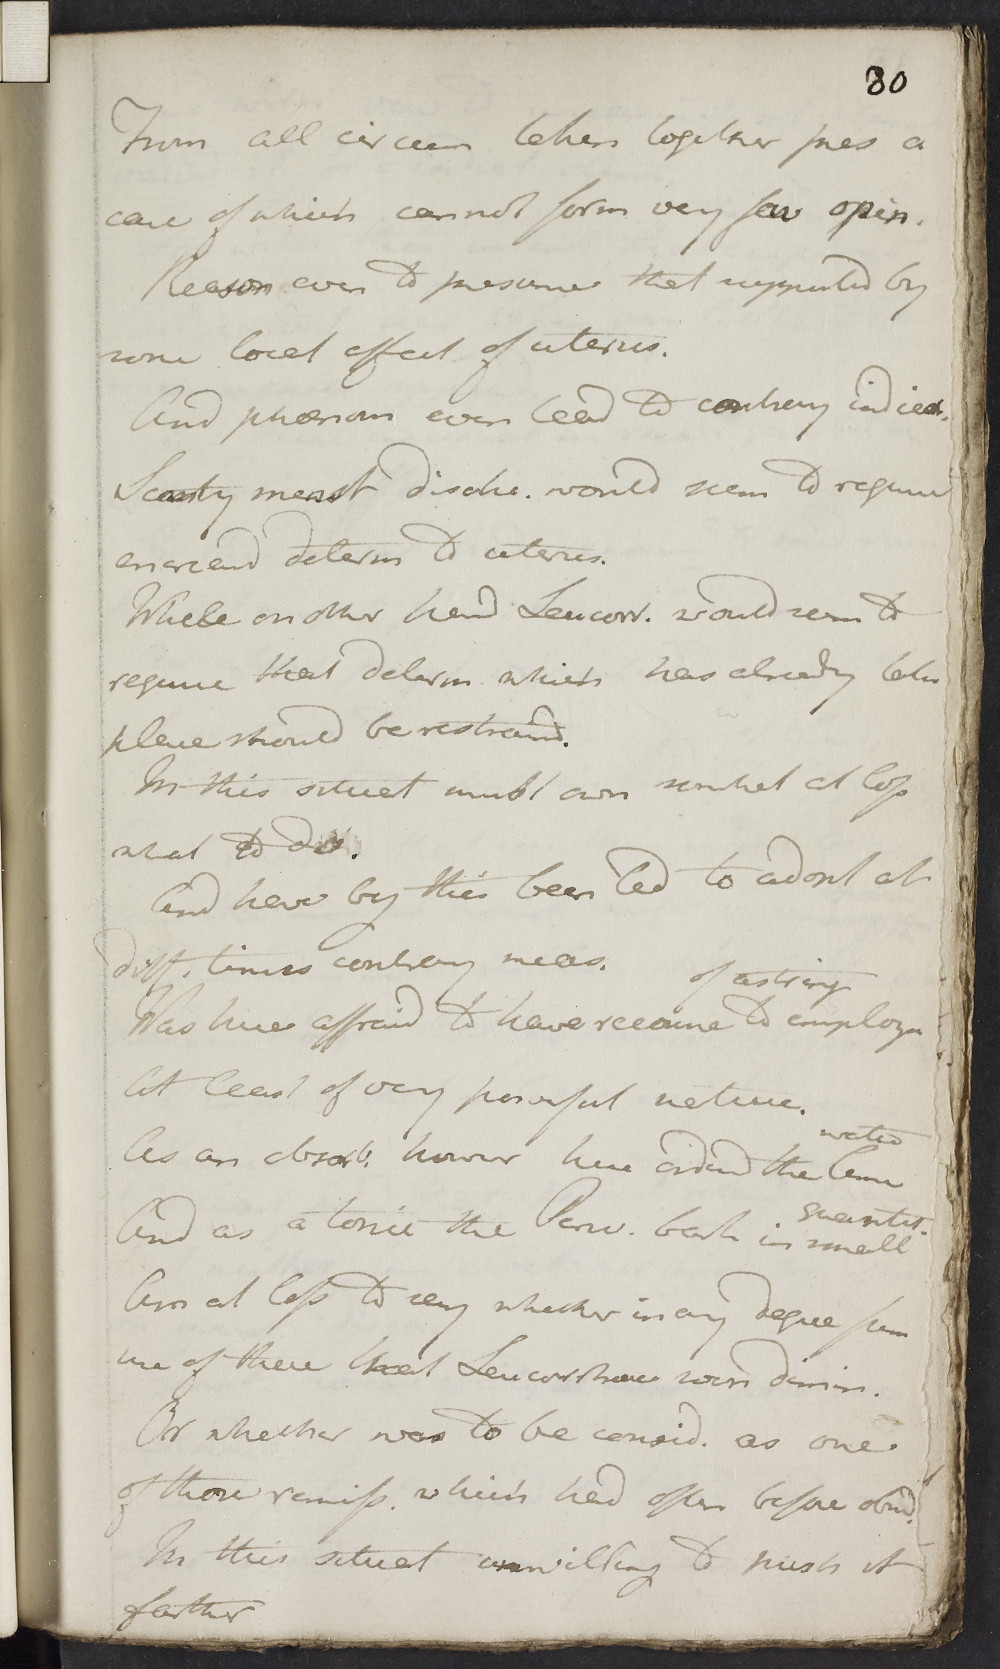 80
From all circum taken together pres a
case of which cannot form very fav opin.
Reason even to presume that supported by
some local affect of uterus.
And phænom even lead to contrary indicat.
Scanty menst dische. would seem to require
encreasd determ to uterus.
While on other hand Leucorr. would seem to
require that determ which has already taken
place should be restraind.
In this situat must own somewhat at loss
what to do.
And have by this been led to adopt at
diff. times contrary meas.
of astring
Was here affraid to have recourse to employ
At least of very powerful nature.
water
As an absorb. however here the Lime
quantit.
And as a tonic the Peru. bark in small
Am at loss to say whether in any degree from
use of these that Leucorrhœa was dimin.
Or whether was to be consid. as one
of those remiss. which had often before obsd.
In this situat unwilling to push it
farther